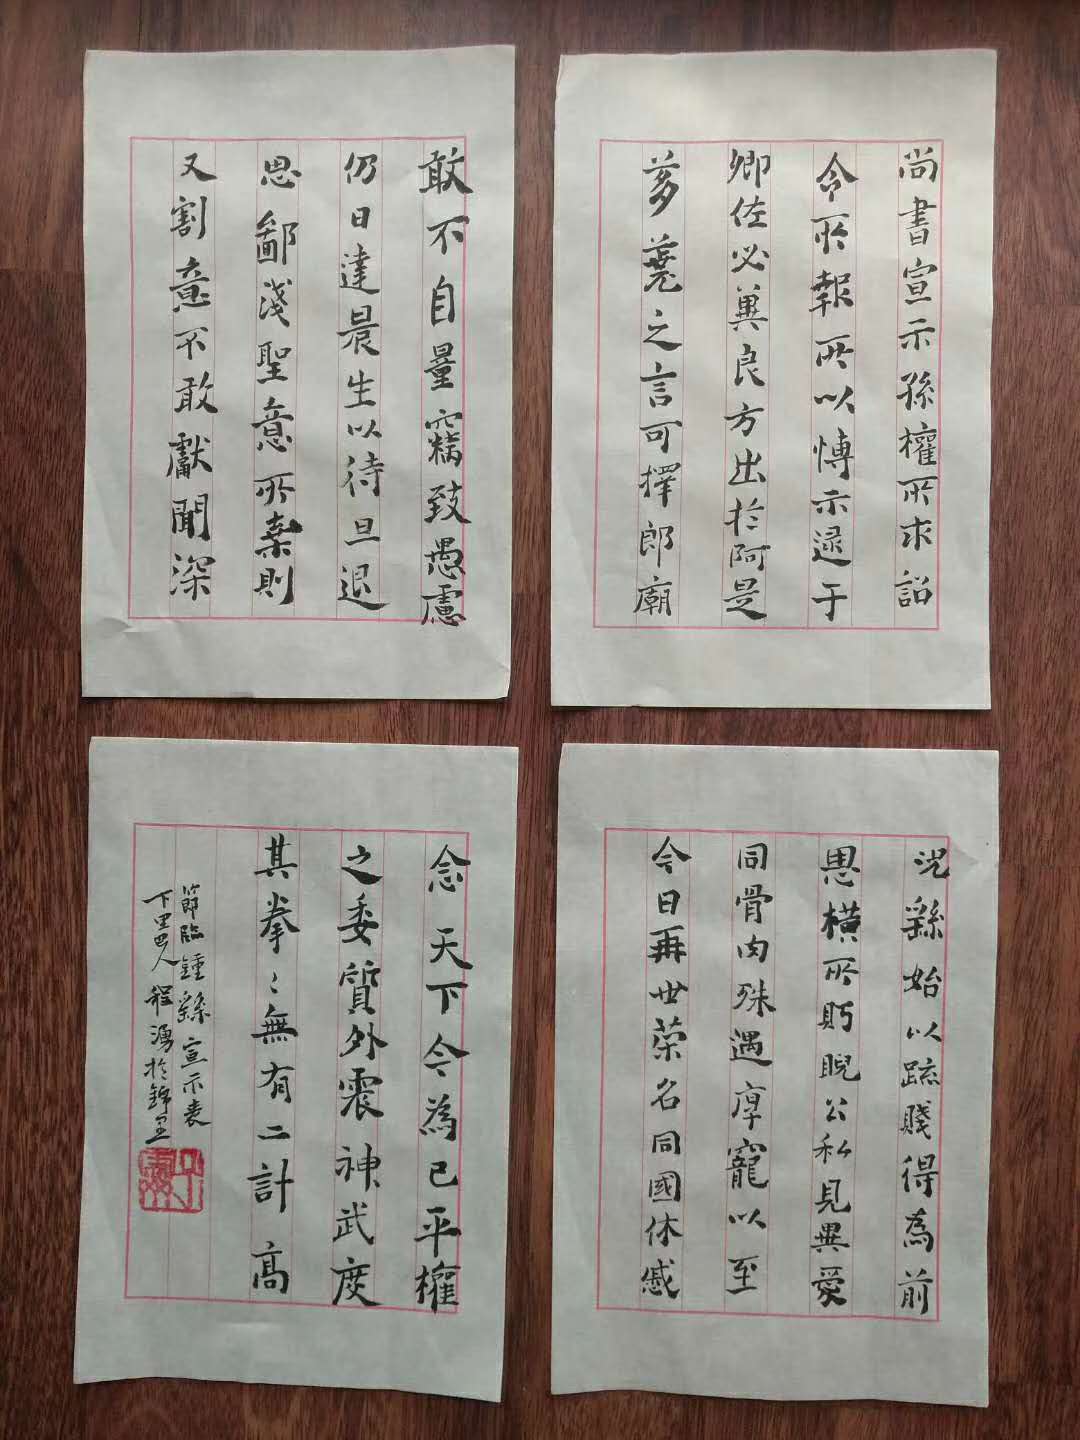 尚書宣示孫權所求詔
令所報所以愽示逮于
卿佐必冀良方出於阿是
芻蕘之言可擇郎廟
況繇始以疏賤得為前
恩橫所眄睨公私見異愛
同骨肉殊遇厚寵以至
今日再世荣名同國休慼
敢不自量竊致愚慮
仍日達晨坐以待旦退
思鄙淺聖意所棄則
又割意不敢獻聞深
念天下今為已平權
之委質外震神武度
其拳〻無有二計高
節臨鍾繇宣示表
下里巴人程湧於錦里